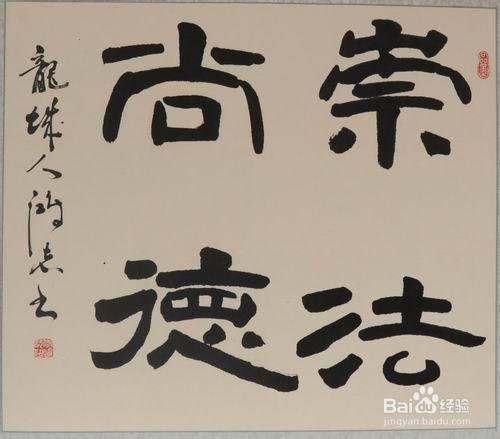 崇法
尚德
龍城人鴻志书
Bai du 经验
jingyan.baidu.com